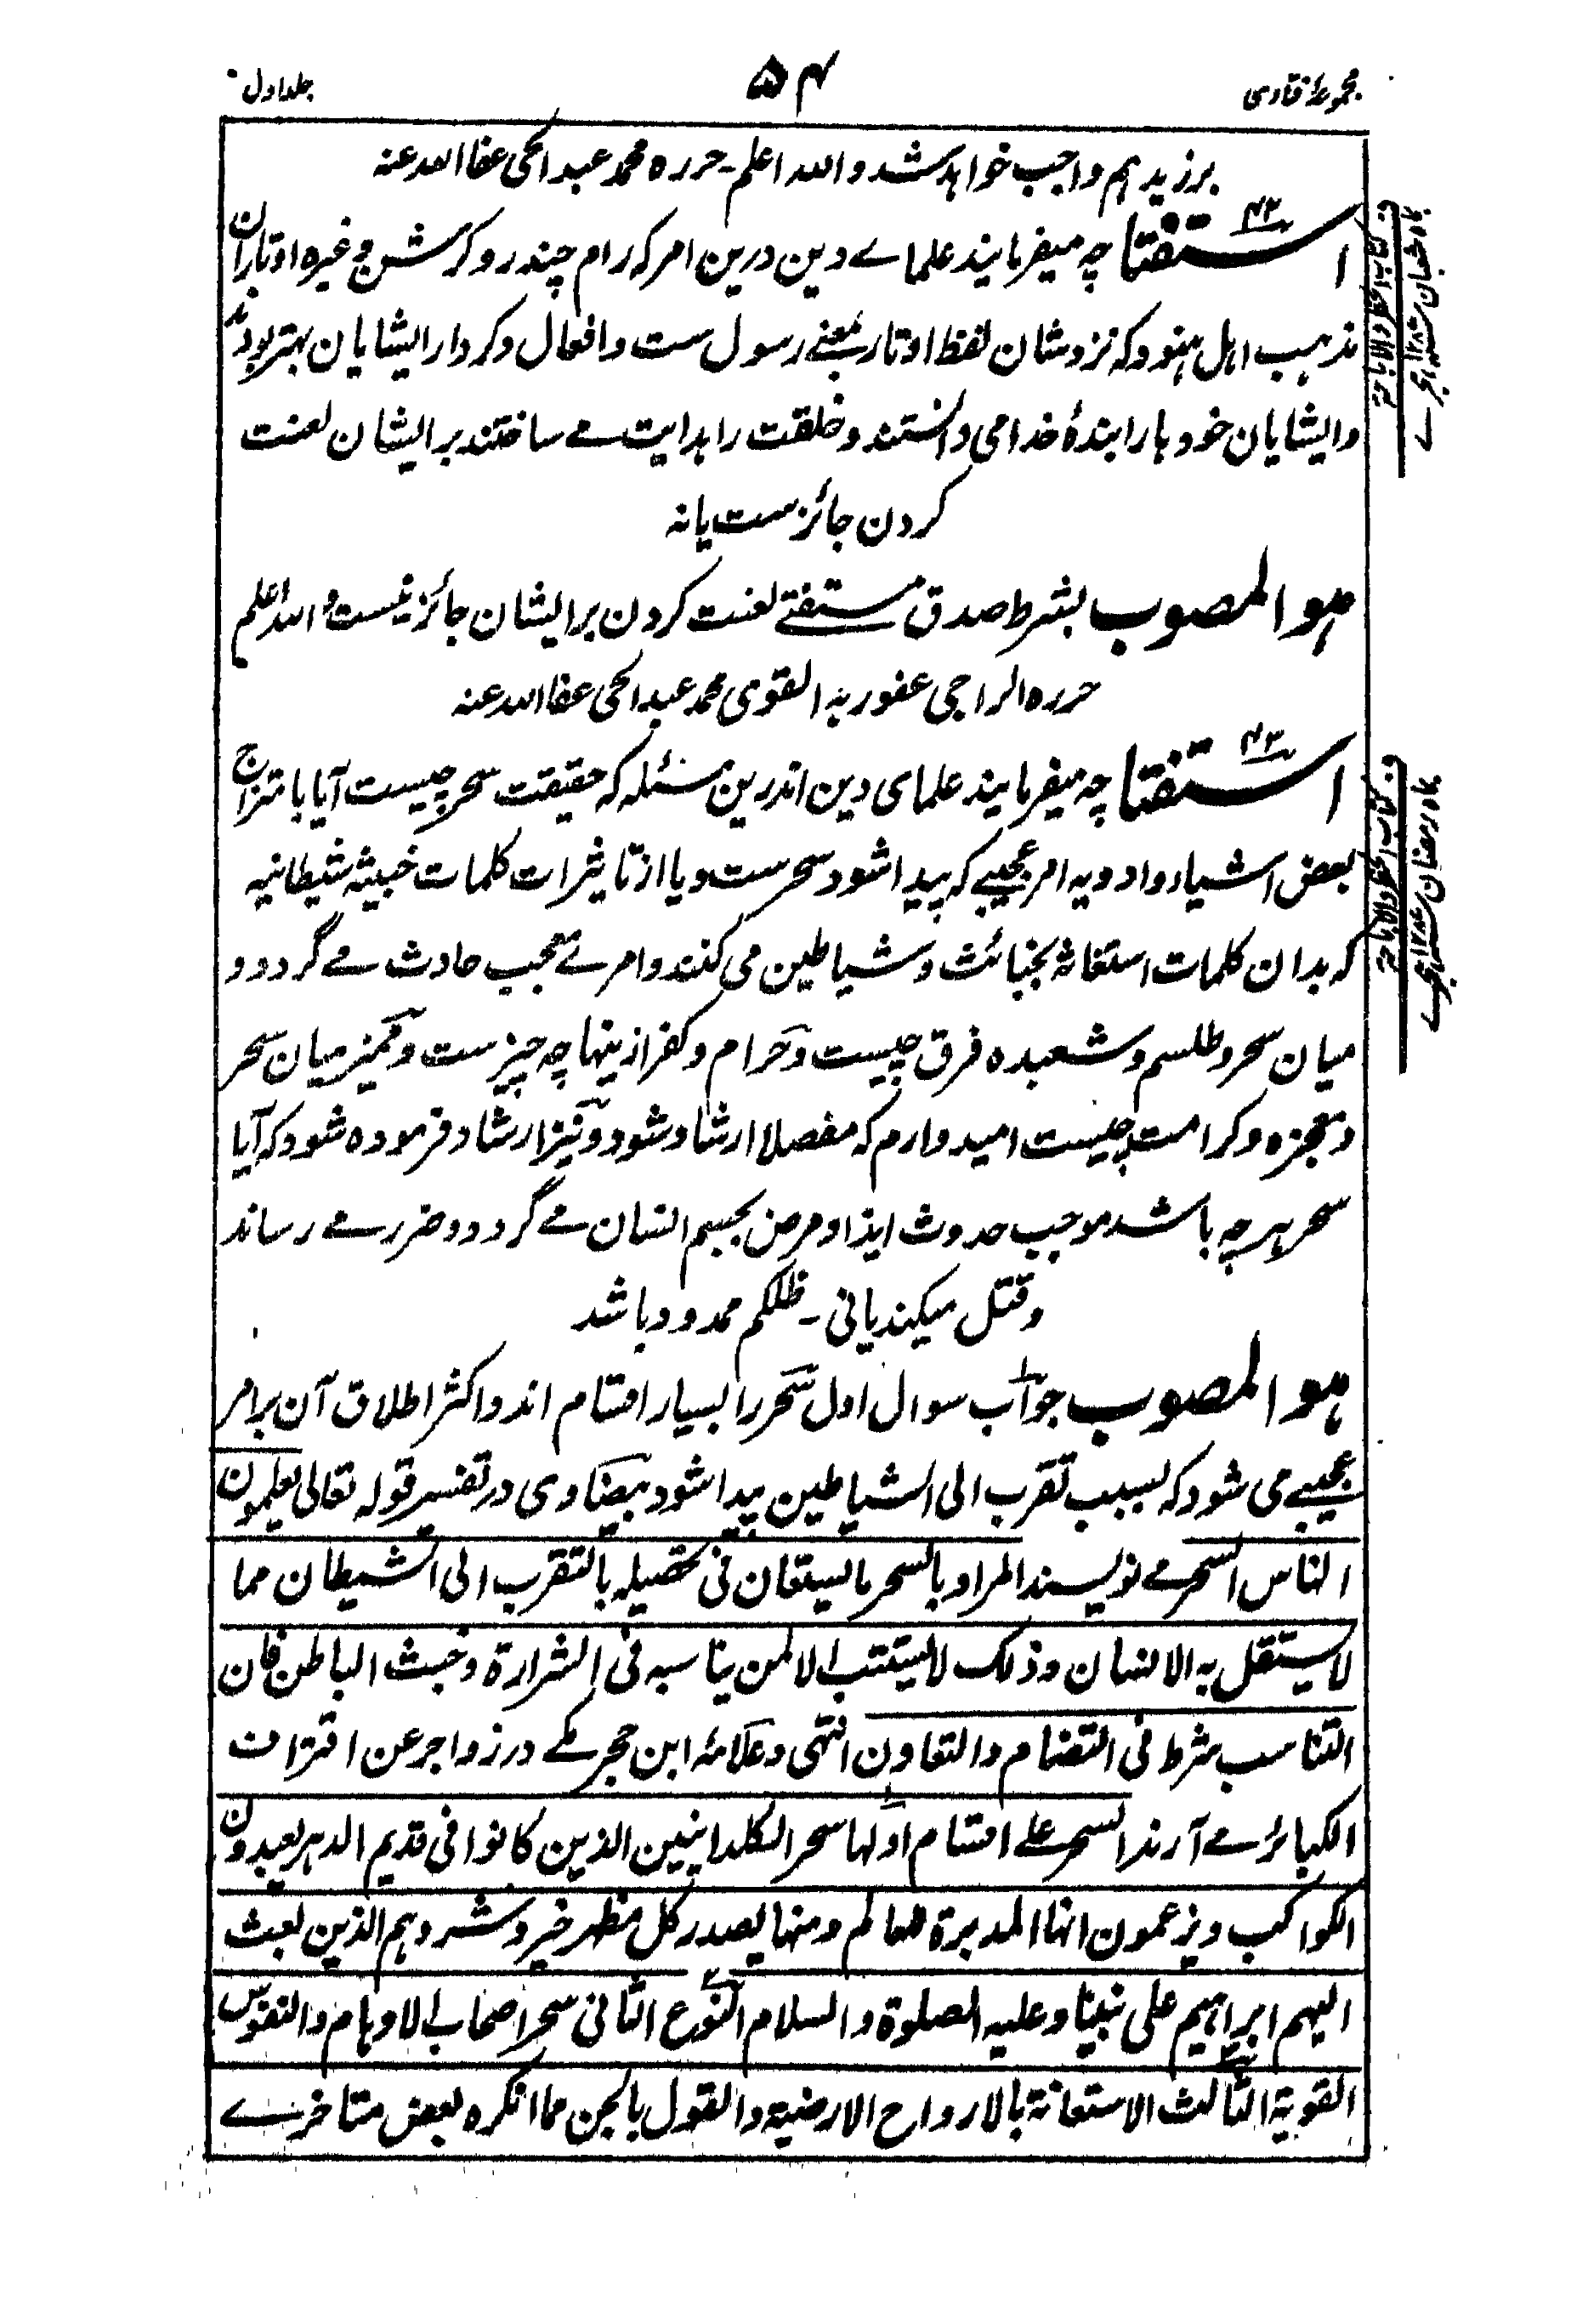 مجموعۂ فتاوی
۵۴
جلد اول
بر زید ہم واجب خواہد شد واللہ اعلم ۔ حررہ محمد عبدالحی عفا اللہ عنہ
استفتا چہ میفرمایند علماے دین درین امر کہ رام چندر و کرشن وغیرہ اوتاران
مذہب اہل ہنود کہ نزد شان لفظ اوتار بمعنے رسول ست و افعال و کردار ایشایان بہتر بودند
و ایشایان خودہا را بندۂ خدا می دانستند و خلقت را ہدایت مے ساختند بر ایشان لعنت
کردن جائز ست یا نہ
ہو المصوب بشرط صدق مستفتے لعنت کردن بر ایشان جائز نیست واللہ اعلم
حررہ الراجی عفو ربہ القوی محمد عبدالحی عفا اللہ عنہ
استفتا ۴۳ چہ میفرمایند علمای دین اندرین مسئلہ کہ حقیقت سحر چیست آیا بامتزاج
بعض اشیاء و ادویہ امر عجیبے کہ پیدا شود سحر ست و یا از تاثیرات کلمات خبیثہ شیطانیہ
کہ بدان کلمات استغاثہ بخبائث و شیاطین می کنند و امرے عجیب حادث مے گردد و
میان سحر و طلسم و شعبدہ فرق چیست و حرام و کفر ازینہا چہ چیز ست و تمیز میان سحر
و معجزہ و کرامت چیست امیدوارم کہ مفصلا ارشاد شود و نیز ارشاد فرمودہ شود کہ آیا
سحر ہر چہ باشد موجب حدوث ایذا و مرض بجسم انسان مے گردد و ضرر مے رساند
و قتل میکند یا نی ۔ ظلکم ممدود باشد
ہو المصوب جواب سوال اول سحر را بسیار اقسام اند و اکثر اطلاق آن بر امر
عجیبے می شود کہ بسبب تقرب الی الشیاطین پیدا شود بیضاوی در تفسیر قولہ تعالی یعلمون
الناس السحر مے نویسند المراد بالسحر ما یستعان فی تحصیلہ بالتقرب الی الشیطان مما
لا یستقل بہ الانسان و ذلک لا یستتب الا لمن یناسبہ فی الشرارۃ و خبث الباطن فان
التناسب شرط فی التضام والتعاون انتہی و علامہ ابن حجر مکے در زواجر عن اقتراف
الکبائر مے آرند السحر علے اقسام اولہا سحر الکلدانیین الذین کانوا فی قدیم الدہر یعبدون
الکواکب ویزعمون انہا المدبرۃ للعالم ومنہا یصدر کل مظہر خیر و شر وہم الذین بعث
الیہم ابراہیم علی نبینا وعلیہ الصلوۃ والسلام النوع الثانی سحر اصحاب الاوہام والنفوس
القویۃ الثالث الاستعانۃ بالارواح الارضیۃ والقول بالجن مما انکرہ بعض متاخرے